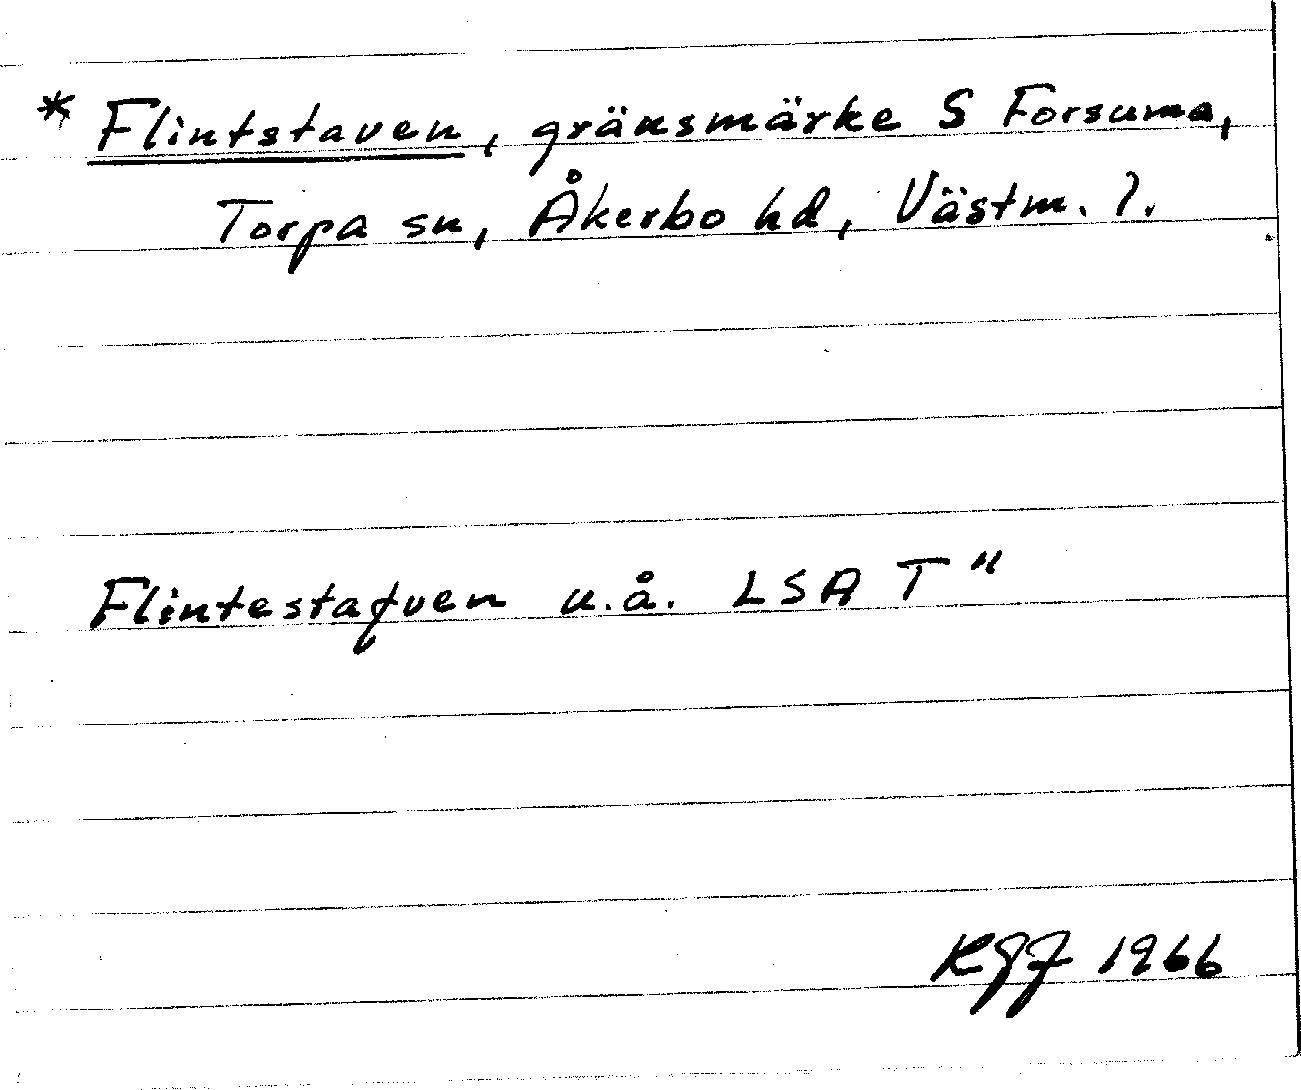 * Flintstaven, gränsmärke S Forsuma,
Torpa sn, Åkerbo hd, Västm. l.
Flintestafven u.å. LSA T"
1966